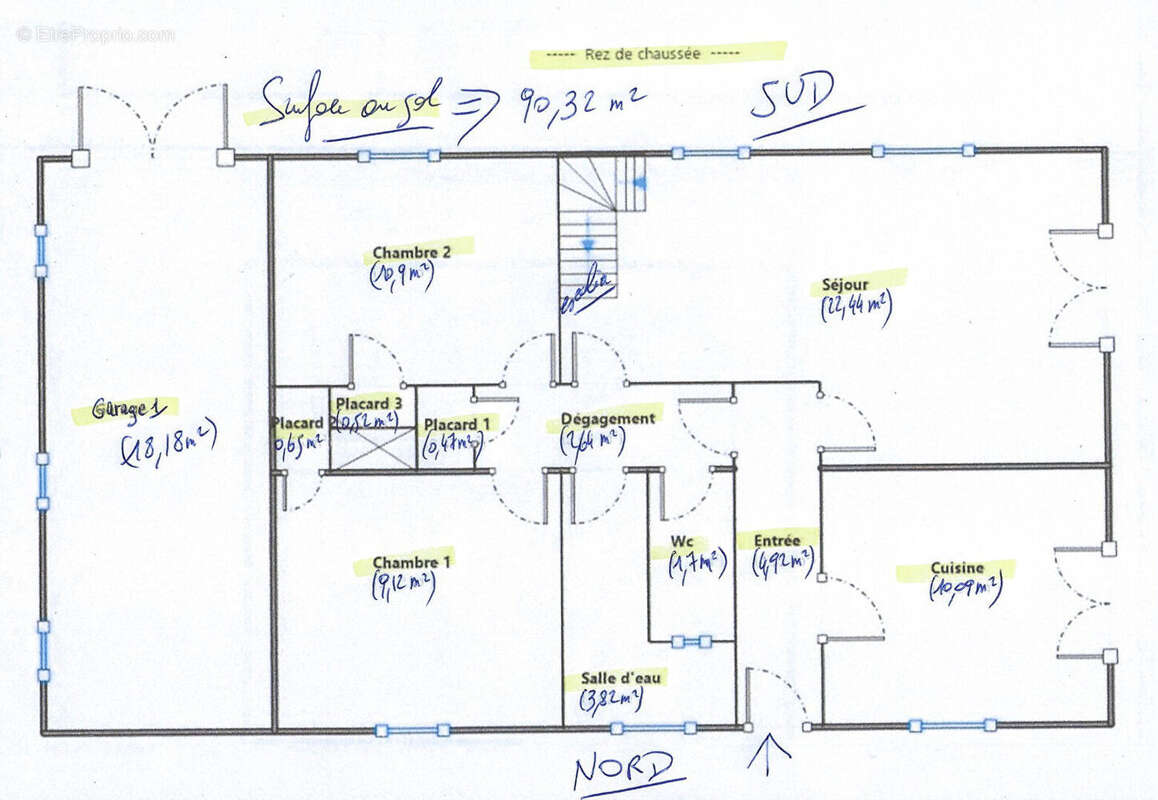 © EtreProprio.com
----- Rez de chaussée -----
Surface au sol ⇒ 90,32 m²
SUD
Chambre 2
(10,9 m²)
escalier
Séjour
(22,44 m²)
Garage 1
(18,18 m²)
Placard 2
0,65 m²
Placard 3
(0,52 m²)
Placard 1
(0,47 m²)
Dégagement
(7,64 m²)
Chambre 1
(9,12 m²)
Wc
(1,7 m²)
Entrée
(4,92 m²)
Cuisine
(10,09 m²)
Salle d'eau
(3,82 m²)
NORD